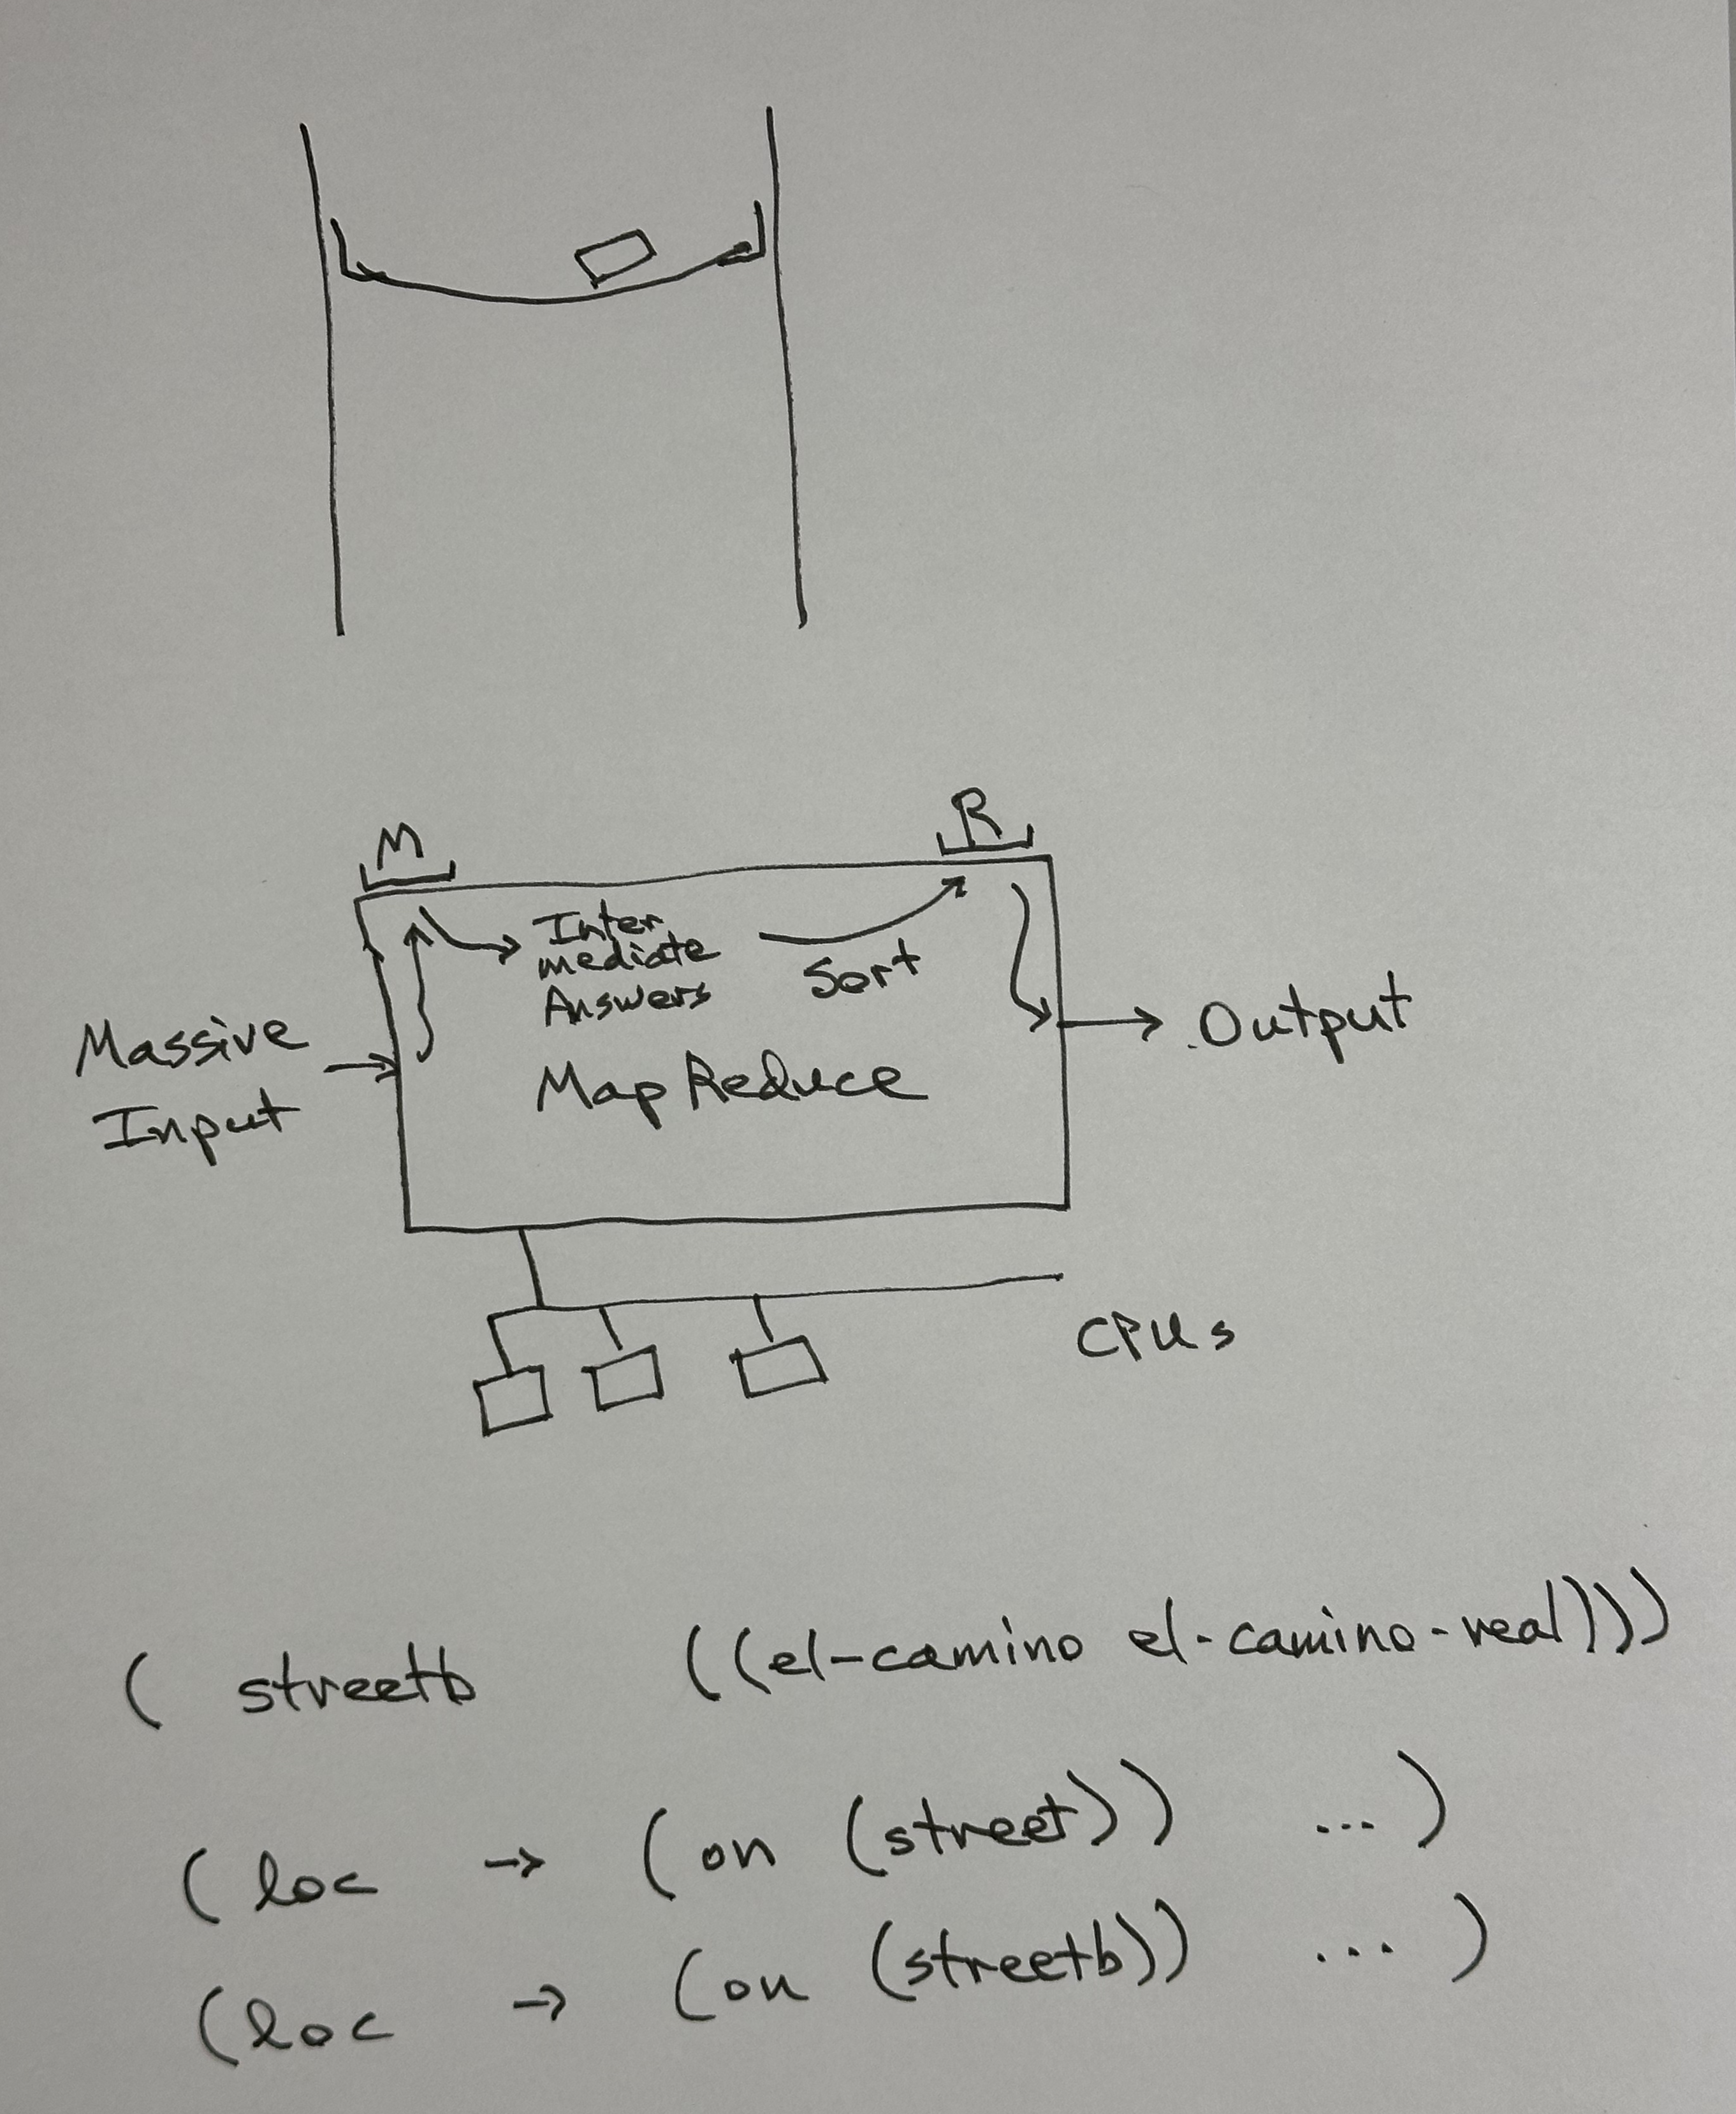 M
R
Inter
mediate
Answers
Sort
Massive
Input
Output
MapReduce
CPUs
( streetb ((el-camino el-camino-real)))
(loc → (on (street)) ... )
(loc → (on (streetb)) ... )